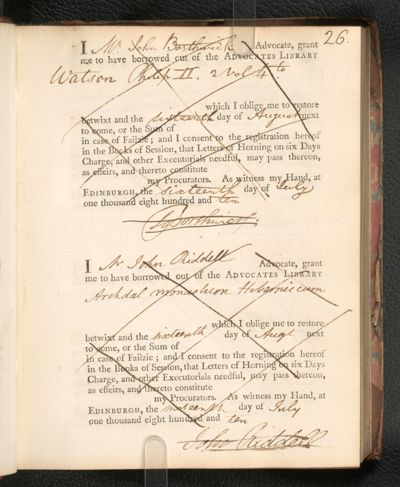 26.
I Mr. John Borthwick Advocate, grant
me to have borrowed out of the ADVOCATES LIBRARY
Watson Philip II. 2 Vol 4to
which I oblige me to restore
betwixt and the sixteenth day of August next
to come, or the Sum of
in case of Failzie; and I consent to the registration hereof
in the Books of Session, that Letters of Horning on six Days
Charge, and other Executorials needful, may pass thereon,
as effeirs, and thereto constitute
my Procurators. As witness my Hand, at
EDINBURGH, the Sixteenth day of July
one thousand eight hundred and ten
Borthwick
I Mr John Riddell Advocate, grant
me to have borrowed out of the ADVOCATES LIBRARY
Archdal monasticon Hibernicum
which I oblige me to restore
betwixt and the sixteenth day of Augt next
to come, or the Sum of
in case of Failzie; and I consent to the registration hereof
in the Books of Session, that Letters of Horning on six Days
Charge, and other Executorials needful, may pass thereon,
as effeirs, and thereto constitute
my Procurators. As witness my Hand, at
EDINBURGH, the sixteenth day of July
one thousand eight hundred and ten
John Riddell